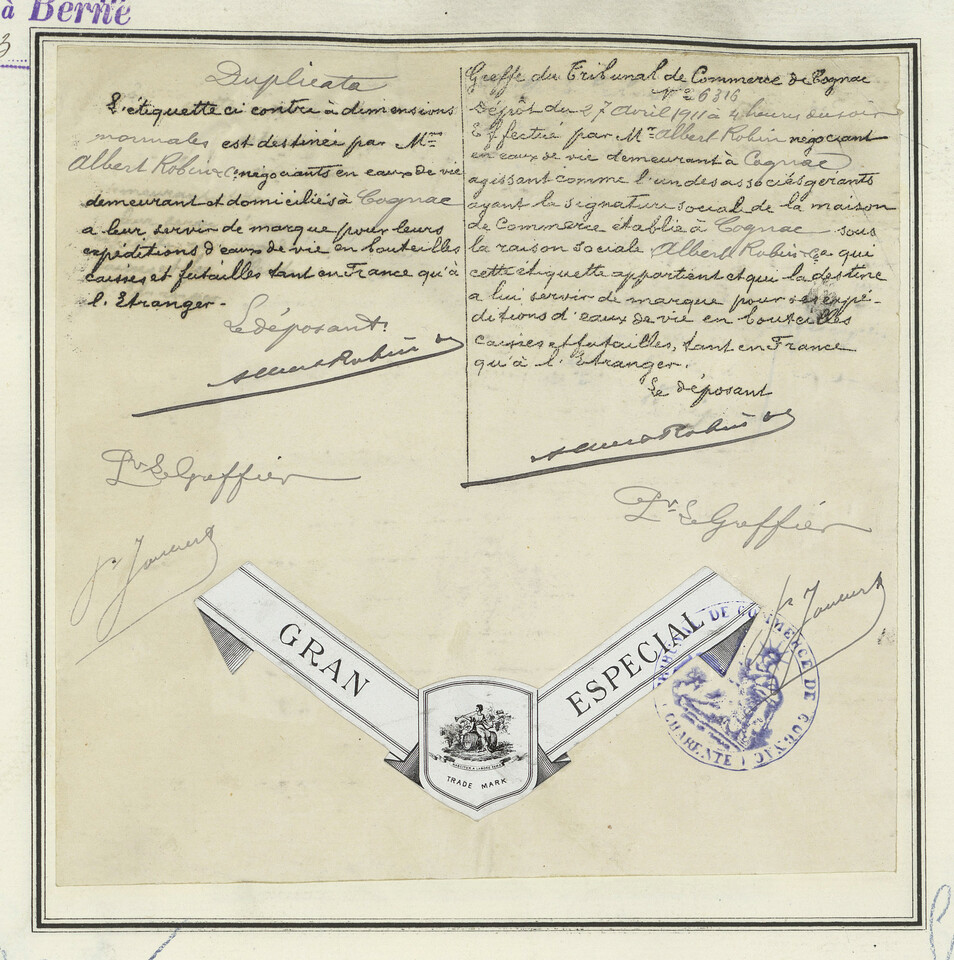 à Berne
3
Duplicata
L'étiquette ci contre à dimensions
normales est destinée par Mrs
Albert Robin & C. négociants en eaux de vie
demeurant et domiciliés à Cognac
a leur servir de marque pour leurs
expéditions d'eaux de vie en bouteilles
caisses et futailles tant en France qu'à
l'Etranger.-
Le déposant.
Albert Robin & Co
Pr. Le Greffier
Greffe du Tribunal de Commerce de Cognac
No 6316
Dépôt du 27 Avril 1911 à 4 heures du soir
Effectué par Mr. Albert Robin négociant
en eaux de vie demeurant à Cognac
agissant comme l'un des associés gérants
ayant la signature social de la maison
de Commerce établie à Cognac sous
la raison sociale Albert Robin & Co a qui
cette étiquette appartient et qui la destine
a lui servir de marque pour ses expé-
ditions d'eaux de vie en bouteilles
caisses et futailles, tant en France
qu'à l'Etranger.
Le déposant
Albert Robin & Co
Pr. Le Greffier
GRAN
ESPECIAL
TRADE MARK
TRIBUNAL DE COMMERCE DE COGNAC
(CHARENTE)